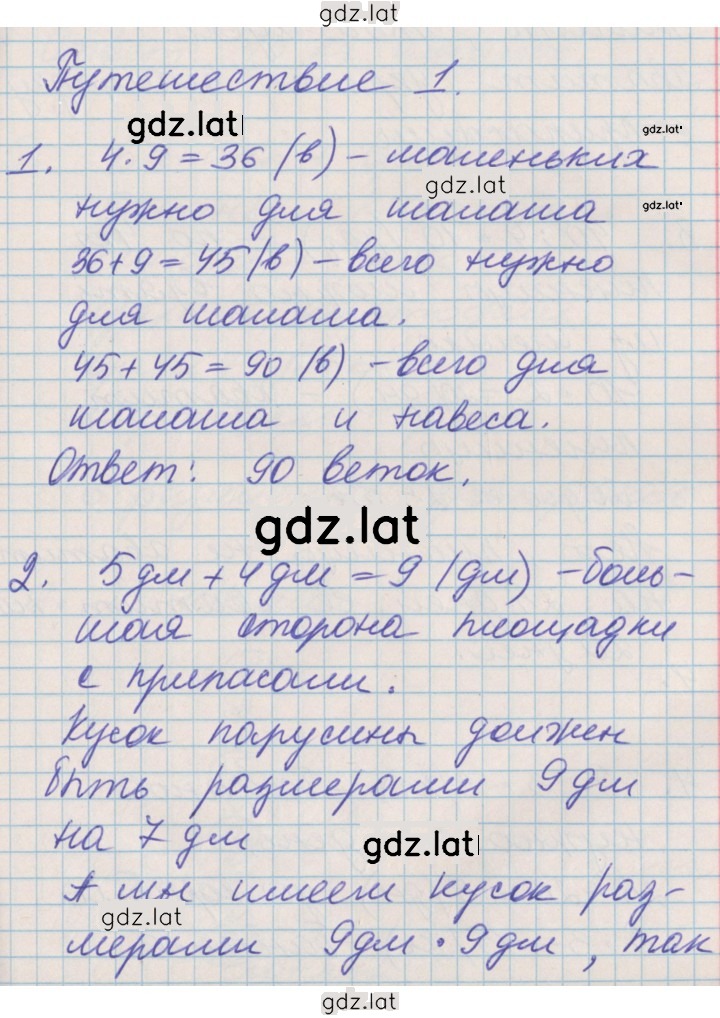 gdz.lat
Путешествие 1.
gdz.lat
gdz.lat
1. 4·9=36 (в) – маленьких
gdz.lat
нужно для шалаша
gdz.lat
36+9=45(в) – всего нужно
для шалаша.
45+45=90 (в) – всего для
шалаша и навеса.
Ответ: 90 веток.
gdz.lat
2. 5дм+4дм=9 (дм) – боль-
шая сторона площадки
с припасами.
Кусок парусины должен
быть размерами 9дм
на 7дм
gdz.lat
А мы имеем кусок раз-
gdz.lat
мерами 9дм·9дм, так
gdz.lat